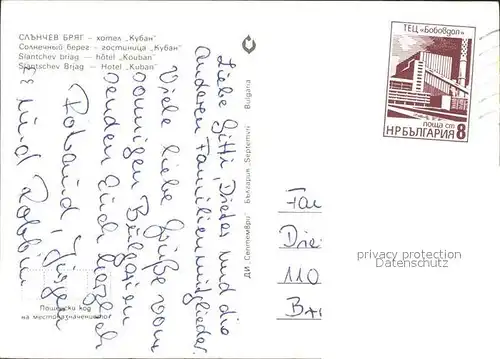 СЛЪНЧЕВ БРЯГ – хотел „Кубан"
Солнечный берег – гостиница „Кубан"
Slantchev briag — hôtel „Kouban"
Slantschev Brjag — Hotel „Kuban"
Liebe Gitti, Dieter und die
anderen Familienmitglieder.
Viele liebe Grüße vom
sonnigen Bulgarien
senden Euch herzlich
Roland, Jürgen
und Robbin
ДИ. „Септември" България „Septemvri" Bulgaria
ТЕЦ „Бобовдол"
поща ст
НР БЪЛГАРИЯ 8
Fa
Die
110
privacy protection
Datenschutz
Пощенски код
на местоназначението